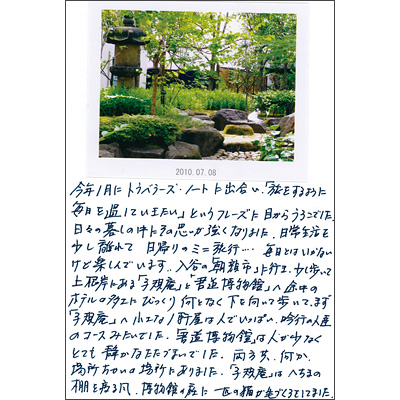 2010.07.08
今年1月にトラベラーズ・ノートに出合い、「旅をするように
毎日を過していきたい」というフレーズに目からうろこでした。
日々の暮しの中にその思いが強くなりました。日常生活を
少し離れて 日帰りのミニ旅行… 毎日とはいかない
けど楽しんでいます。入谷の「朝顔市」に行き、少し歩いて
上根岸にある「子規庵」と「書道博物館」へ 途中の
ホテルの多さにびっくり 何となく下を向いて歩いて、まず
「子規庵」へ 小さな1軒屋は人でいっぱい、吟行の人達
のコースみたいでした。「書道博物館」は人が少なく
とても 静かなたたずまいでした。両方共、何か、
場所ちがいの場所にありました。「子規庵」はへちまの
棚を通る風、博物館の庭に 一匹の猫が毛づくろいしてました。